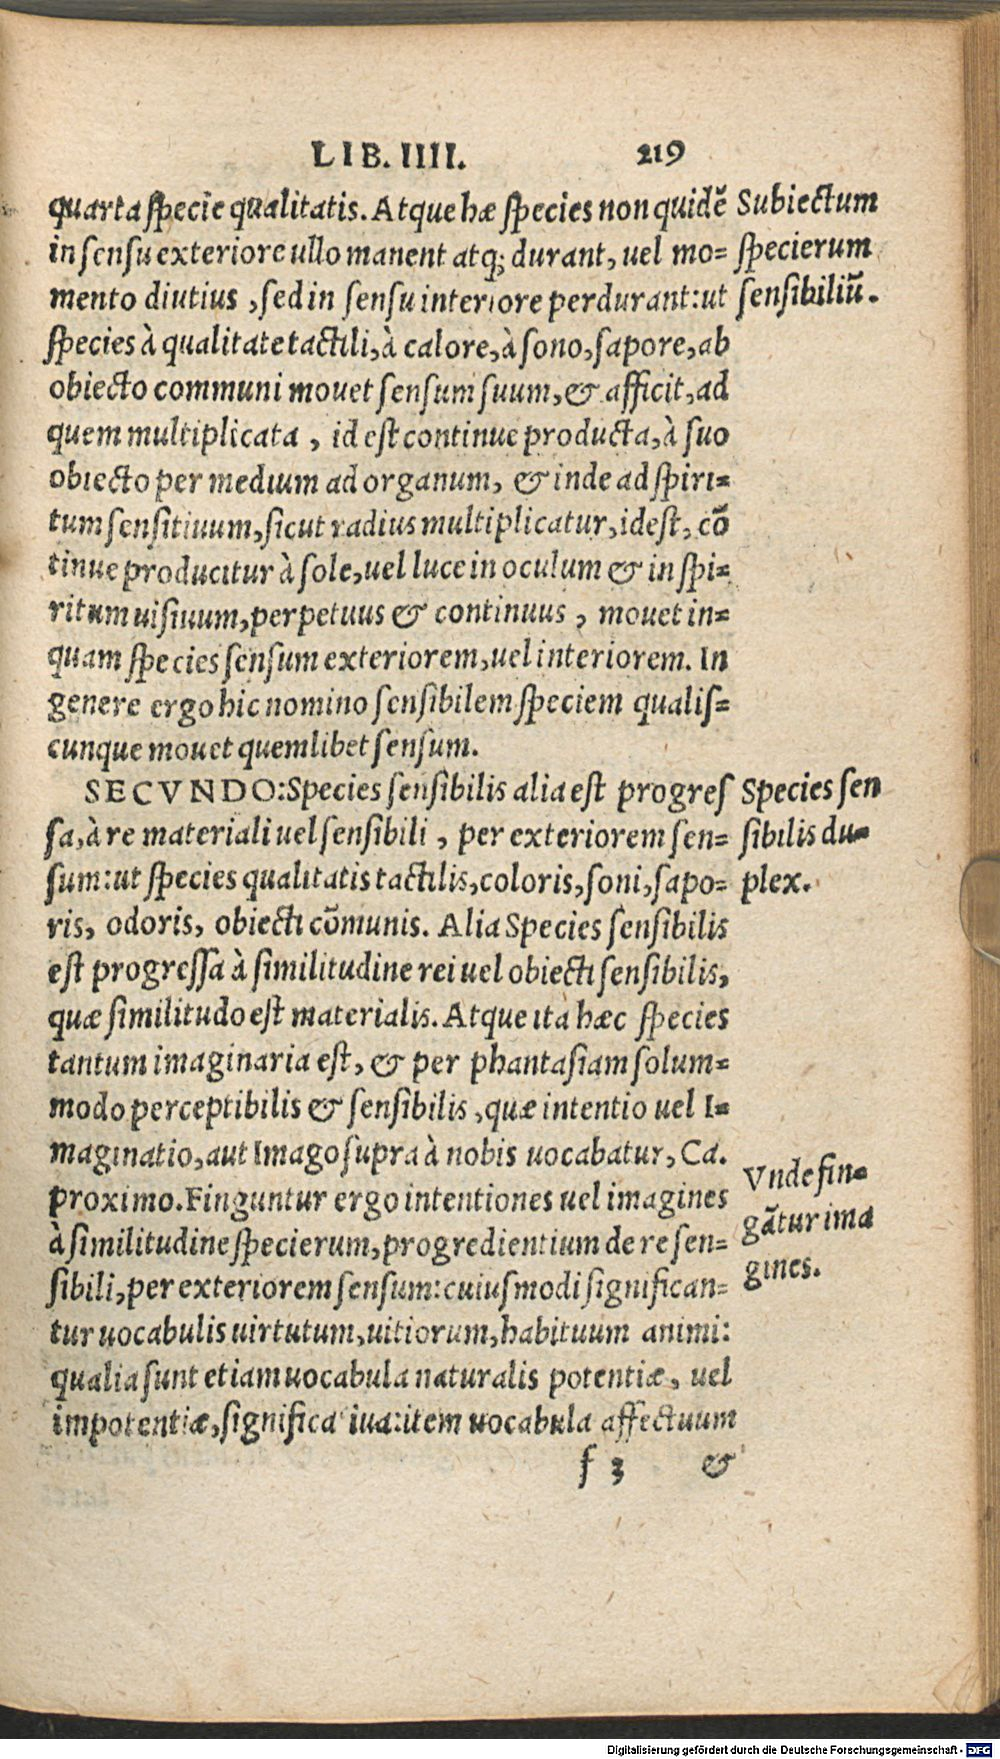 LIB. IIII. 219
quarta specie qualitatis. Atque hæ species non quidẽ
in sensu exteriore ullo manent atq; durant, uel mo=
mento diutius, sed in sensu interiore perdurant: ut
species à qualitate tactili, à calore, à sono, sapore, ab
obiecto communi mouet sensum suum, & afficit, ad
quem multiplicata, id est continue producta, à suo
obiecto per medium ad organum, & inde ad spiri=
tum sensitiuum, sicut radius multiplicatur, idest, cõ
tinue producitur à sole, uel luce in oculum & in spi=
ritum uisiuum, perpetuus & continuus, mouet in=
quam species sensum exteriorem, uel interiorem. In
genere ergo hic nomino sensibilem speciem qualis=
cunque mouet quemlibet sensum.
Subiectum
specierum
sensibiliũ.
SECVNDO: Species sensibilis alia est progres
sa, à re materiali uel sensibili, per exteriorem sen=
sum: ut species qualitatis tactilis, coloris, soni, sapo=
ris, odoris, obiecti cõmunis. Alia Species sensibilis
est progressa à similitudine rei uel obiecti sensibilis,
quæ similitudo est materialis. Atque ita hæc species
tantum imaginaria est, & per phantasiam solum=
modo perceptibilis & sensibilis, quæ intentio uel I=
maginatio, aut Imago supra à nobis uocabatur, Ca.
proximo. Finguntur ergo intentiones uel imagines
à similitudine specierum, progredientium de re sen=
sibili, per exteriorem sensum: cuiusmodi significan=
tur uocabulis uirtutum, uitiorum, habituum animi:
qualia sunt etiam uocabula naturalis potentiæ, uel
impotentiæ, significa iua: item uocabula affectuum
Species sen
sibilis du=
plex.
Vnde fin=
gãtur ima
gines.
f 3 &
Digitalisierung gefördert durch die Deutsche Forschungsgemeinschaft - DFG